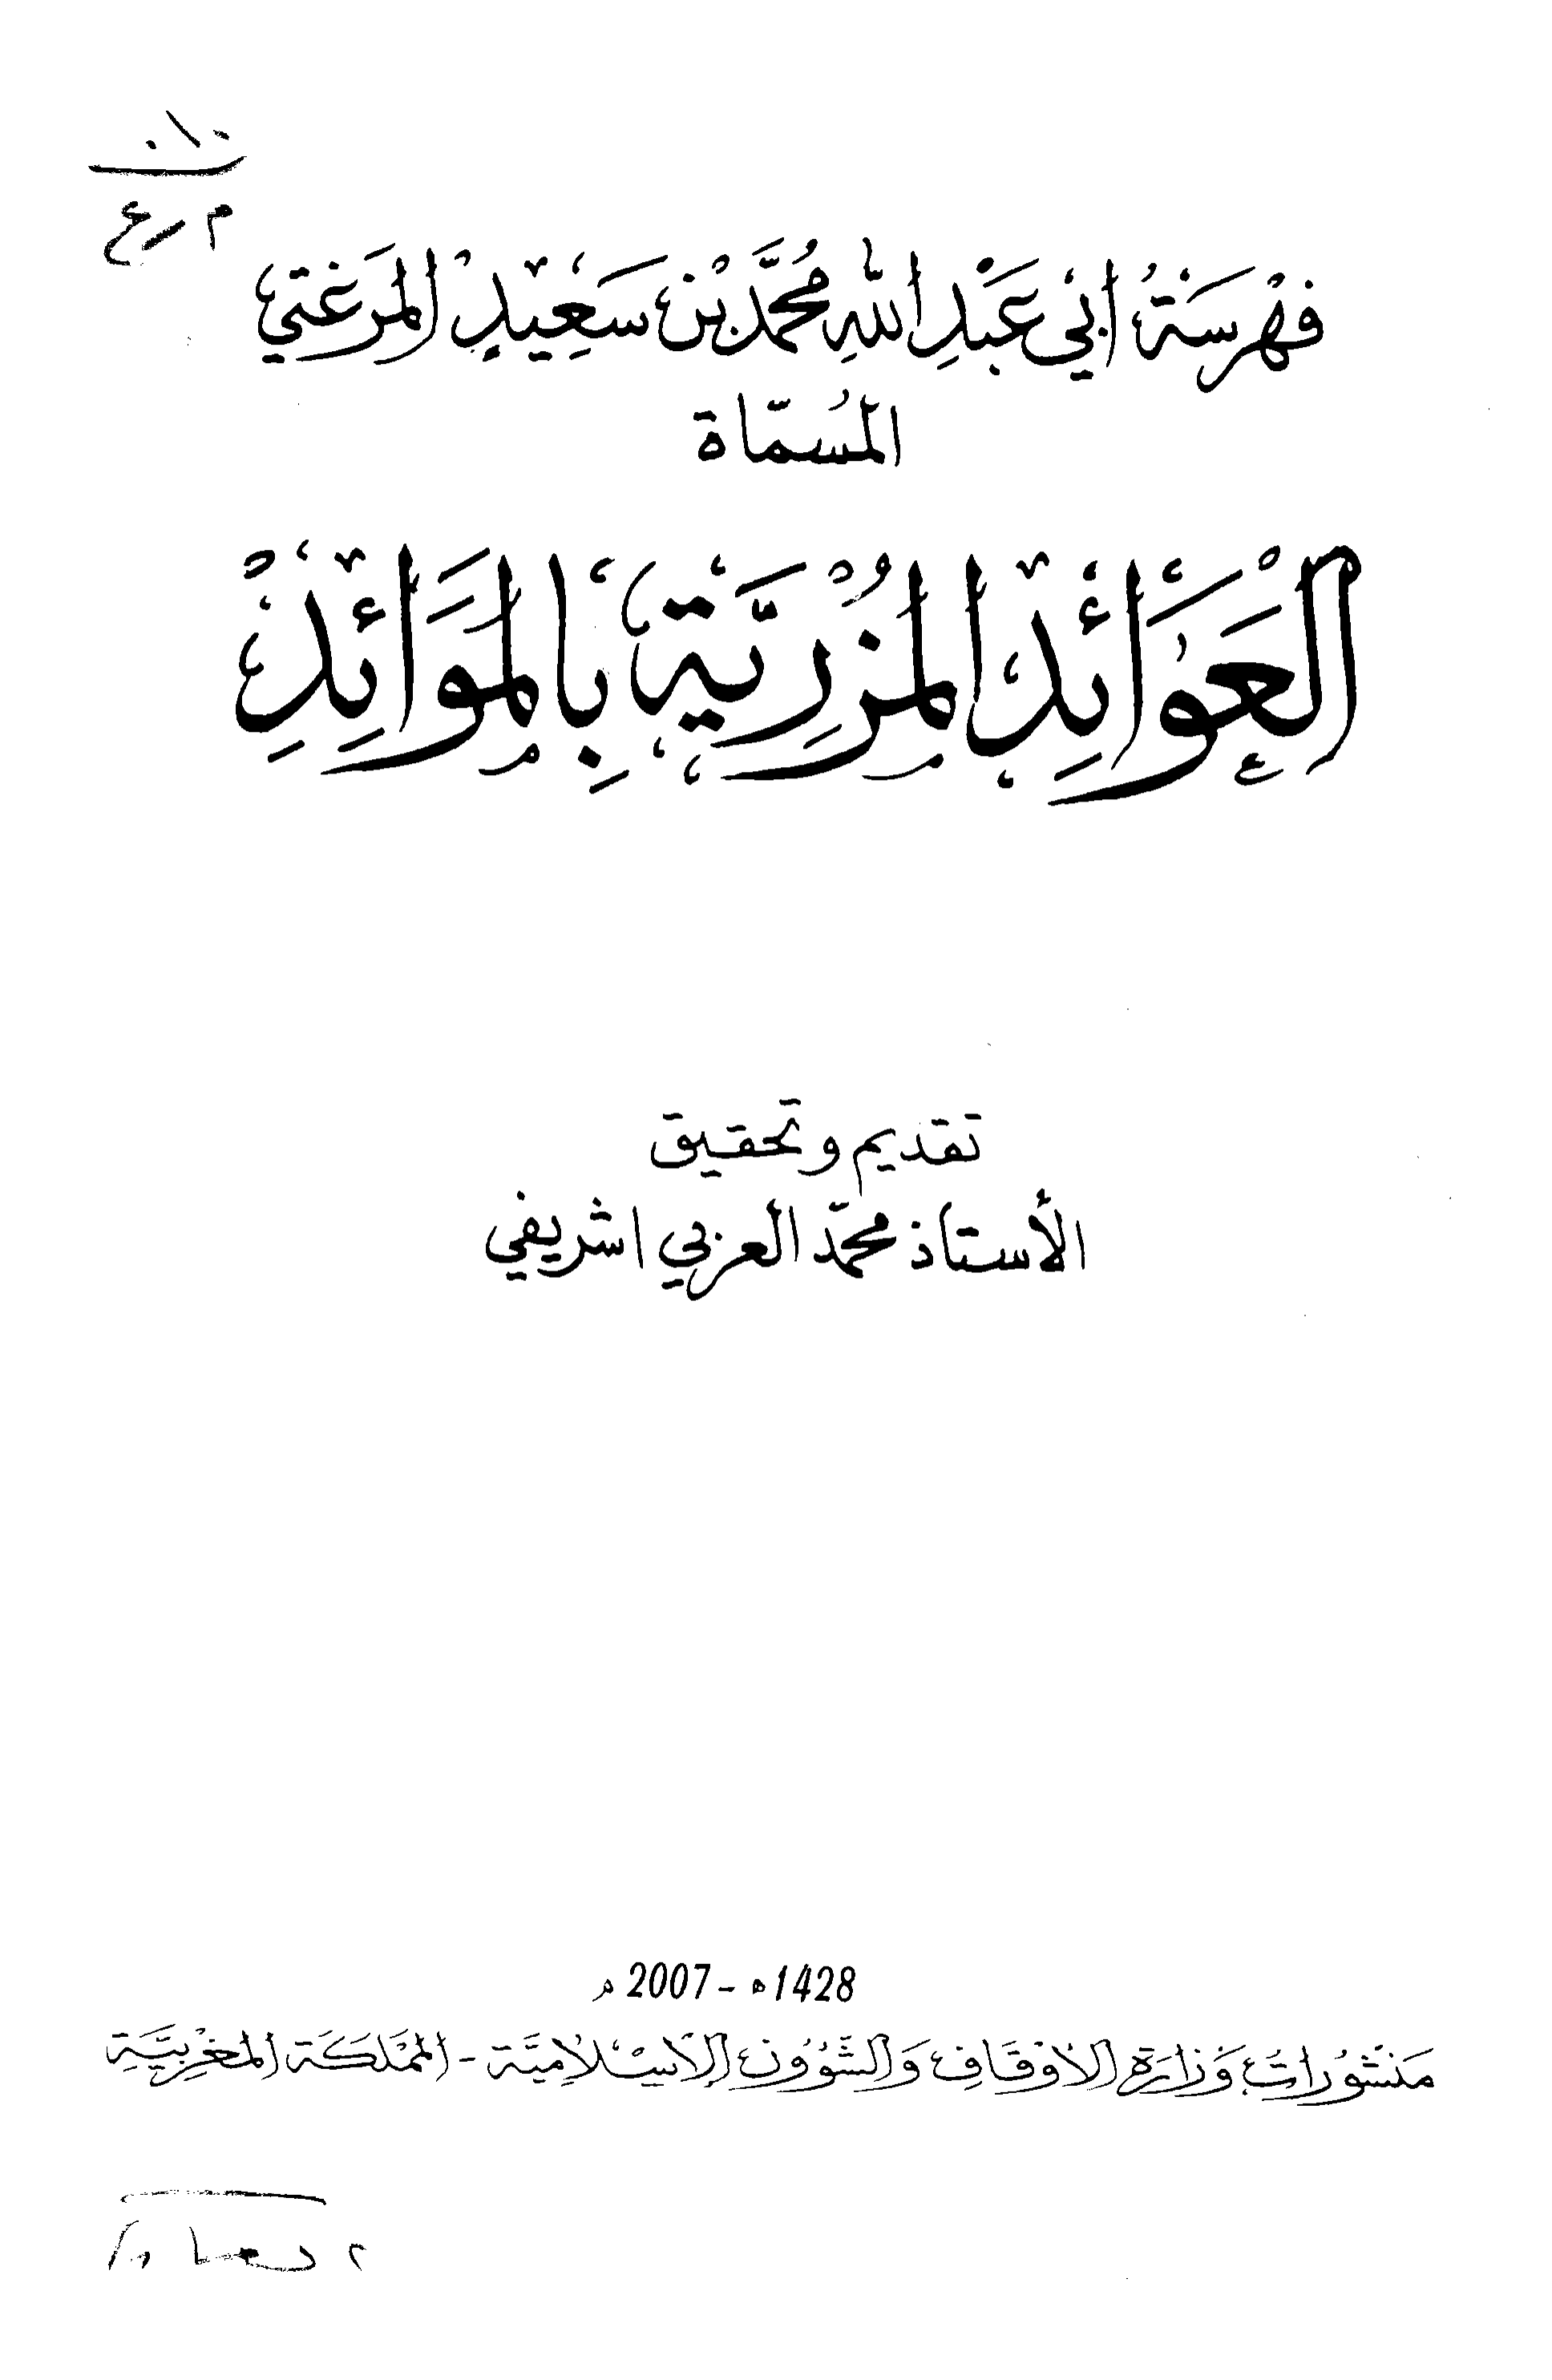 ٠١٠
م ر ع
فهْرسَةُ أبي عَبْدِ اللهِ مُحمَّد بْن سَعِيدٍ المَرغتي
المُسمّاة
العَوَائِد المُزْرِيَّة بِالمَوَائِدِ
تقديم وتحقيق
الأستاذ محمّد العربي اشريفي
1428ھ - 2007 م
مَنشُورَات وَزارَة الأوْقَافِ وَالشّؤُون الإسْلامِيَّة - المَمْلَكَة المَغْرِبيَّةِ